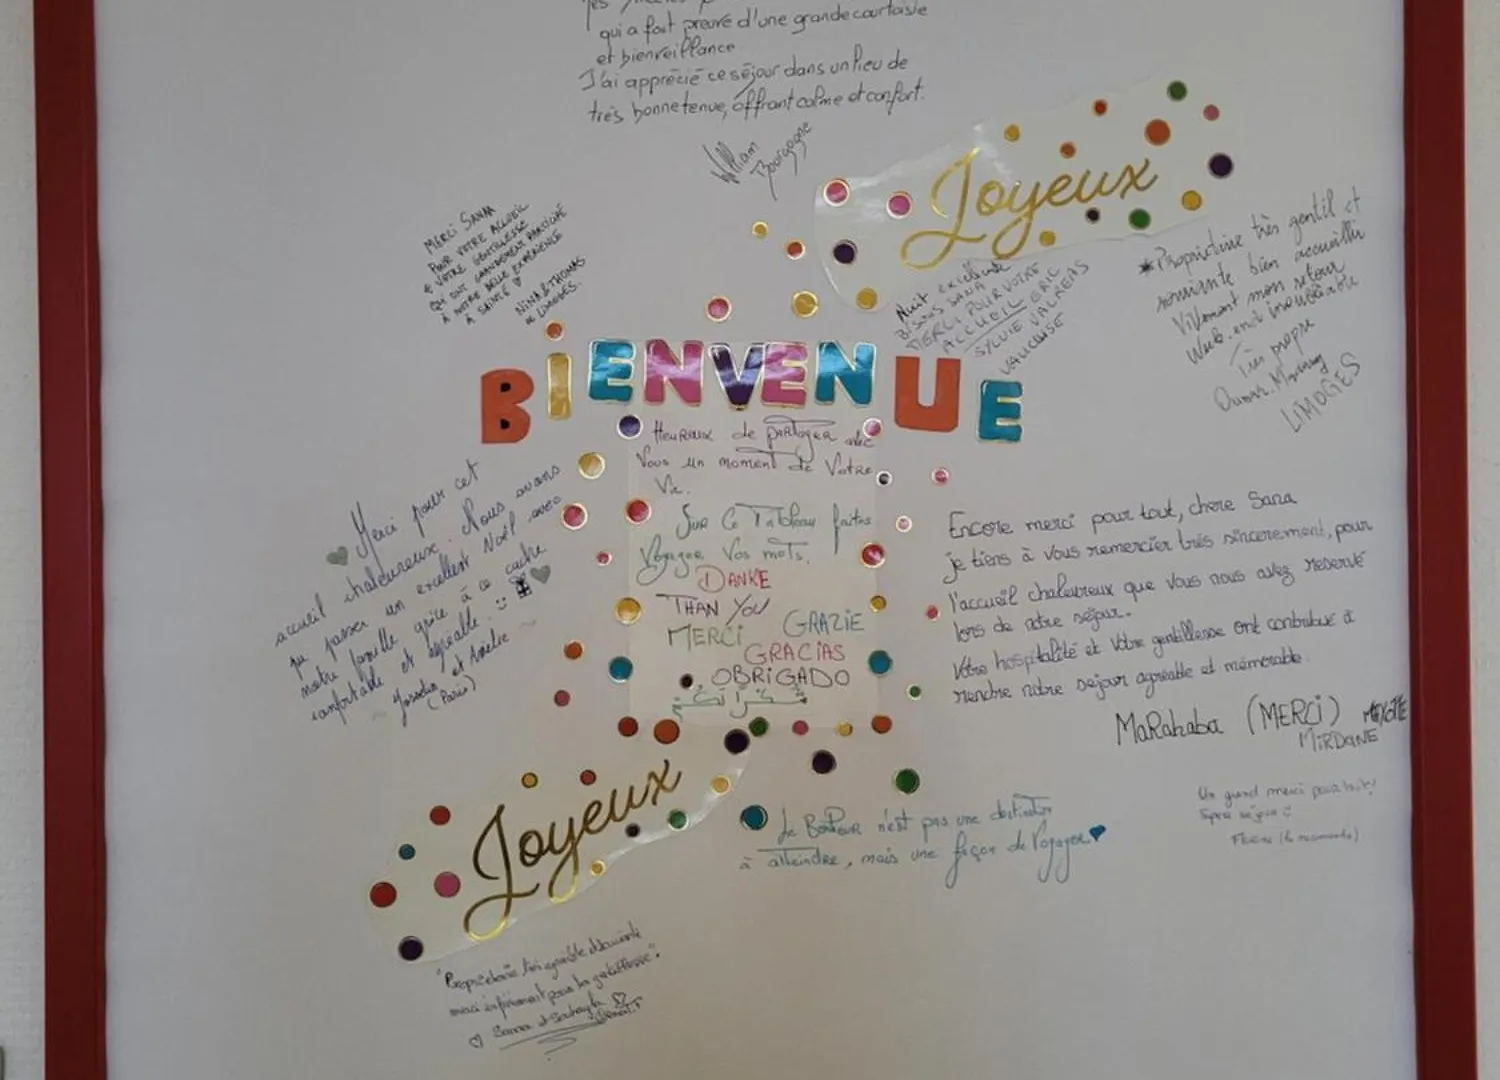 qui a fait preuve d'une grande courtoisie
et bienveillance
J'ai apprécié ce séjour dans un lieu de
très bonne tenue, offrant calme et confort.
William
Bourgogne
Joyeux
MERCI SANAA
POUR VOTRE ACCUEIL
& VOTRE GENTILLESSE
QUI ONT GRANDEMENT PARTICIPÉ
À NOTRE BELLE EXPÉRIENCE
À SAINTE ♡
NINA & THOMAS
de LIMOGES.
Nuit excellente
BISOUS SANA
MERCI POUR VOTRE
ACCUEIL ERIC
SYLVIE VALREAS
VAUCLUSE
*Propriétaire très gentil et
souriante bien accueillir
Vivement mon retour
Week-end inoubliable
Très propre
LIMOGES
BIENVENUE
Heureux de partager avec
Vous un moment de Votre
Vie.
Sur Ce Tableau faites
Voyager Vos mots.
DANKE
THANK YOU
MERCI GRAZIE
GRACIAS
OBRIGADO
شكرا
Merci pour cet
accueil chaleureux. Nous avons
pu passer un excellent Noël avec
notre famille grâce à ce cadre
confortable et agréable. :)
Josselin et Amélie
(Paris)
Encore merci pour tout, chère Sana
je tiens à vous remercier très sincèrement, pour
l'accueil chaleureux que vous nous avez réservé
lors de notre séjour.
Votre hospitalité et Votre gentillesse ont contribué à
rendre notre séjour agréable et mémorable.
MaRahaba (MERCI) MAYOTTE
MIRDANE
Un grand merci pour tout!
Joyeux
Le Bonheur n'est pas une destination
à atteindre, mais une façon de Voyager
"Propriétaire très agréable et souriante
merci infiniment pour la gentillesse".
♡ Sanaa et